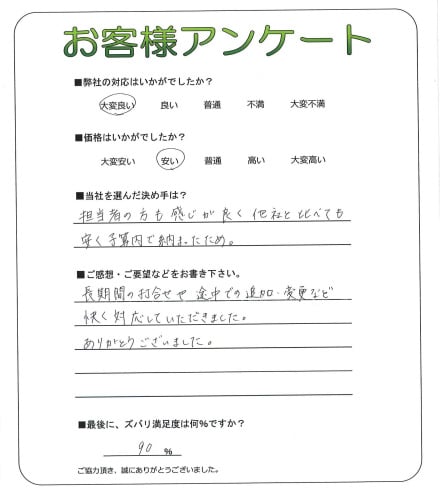 お客様アンケート
■弊社の対応はいかがでしたか？
大変良い 良い 普通 不満 大変不満
■価格はいかがでしたか？
大変安い 安い 普通 高い 大変高い
■当社を選んだ決め手は？
担当者の方も感じが良く他社と比べても
安く予算内で納まったため。
■ご感想・ご要望などをお書き下さい。
長期間の打合せや途中での追加・変更など
快く対応していただきました。
ありがとうございました。
■最後に、ズバリ満足度は何％ですか？
90 %
ご協力頂き、誠にありがとうございました。